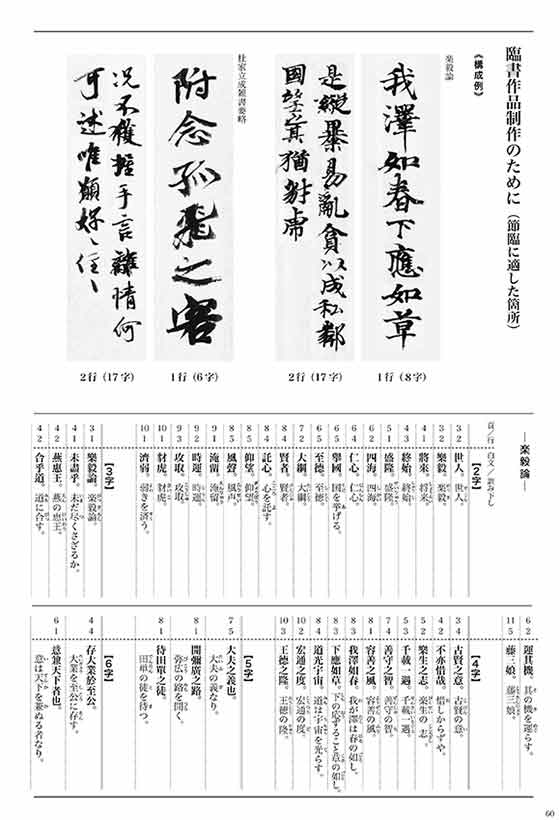 臨書作品制作のために（節臨に適した箇所）
《構成例》
楽毅論
我澤如春下應如草
1行（8字）
是縱暴易亂貪以成私鄰
國望其猶豺虎
2行（17字）
杜家立成雑書要略
附念孤飛之客
1行（6字）
況不獲握手言離情何
可述唯願好〻住〻
2行（17字）
―楽毅論―
頁／行 白文 ／ 読み下し
【2字】
3 2 世人。世人。
3 2 樂毅。楽毅。
4 1 將來。将来。
4 3 終始。終始。
5 1 盛隆。盛隆。
6 2 四海。四海。
6 4 仁心。仁心。
6 5 擧國。国を挙げる。
6 5 至德。至徳。
7 2 大綱。大綱。
8 4 賢者。賢者。
8 4 託心。心を託す。
8 5 仰望。仰望。
8 5 風聲。風声。
9 1 淹留。淹留。
9 2 時運。時運。
9 3 攻取。攻取。
10 2 豺虎。豺虎。
10 1 濟弱。弱きを済う。
【3字】
3 1 樂毅論。楽毅論。
4 1 未盡乎。未だ尽くさざるか。
4 2 燕惠王。燕の恵王。
4 2 合乎道。道に合す。
6 2 運其機。其の機を運らす。
11 5 藤三娘。藤三娘。
【4字】
3 4 古賢之意。古賢の意。
4 2 不亦惜哉。惜しからずや。
5 2 樂生之志。楽生の志。
5 3 千載一遇。千載一遇。
7 4 善守之智。善守の智。
8 1 容善之風。容善の風。
8 3 我澤如春。我が澤は春の如し。
8 3 下應如草。下の応ずること草の如し。
8 4 道光宇宙。道は宇宙を光らす。
10 2 宏通之度。宏通の度。
10 3 王德之隆。王徳の隆。
【5字】
7 5 大夫之義也。大夫の義なり。
8 1 開彌廣之路。弥広の路を開く。
8 1 待田單之徒。田単の徒を待つ。
【6字】
4 4 存大業於至公。大業を至公に存す。
6 1 意兼天下者也。意は天下を兼ぬる者なり。
60